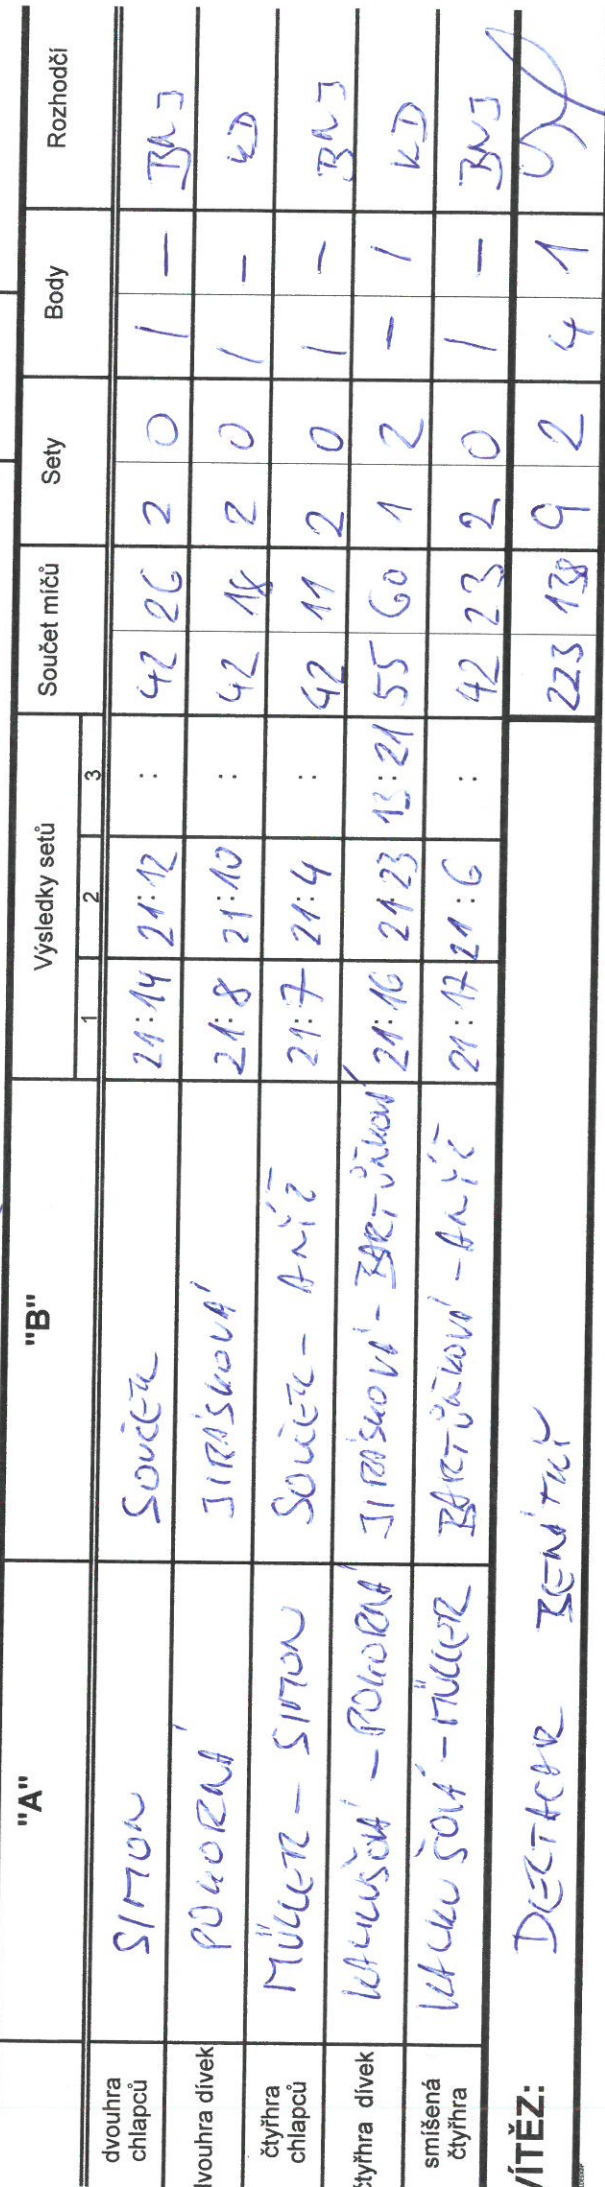 "A" "B" Výsledky setů Součet míčů Sety Body Rozhodčí
1 2 3
dvouhra chlapců SIMON SOUČEK 21:14 21:12 : 42 26 2 0 1 - BNJ
dvouhra dívek POKORNÁ JIRÁSKOVÁ 21:8 21:10 : 42 18 2 0 1 - KD
čtyřhra chlapců MÜLLER - SIMON SOUČEK - ANÝŽ 21:7 21:4 : 42 11 2 0 1 - BNJ
čtyřhra dívek - POKORNÁ JIRÁSKOVÁ - BARTŮŇKOVÁ 21:16 21:23 13:21 55 60 1 2 - 1 KD
smíšená čtyřhra - MÜLLER BARTŮŇKOVÁ - ANÝŽ 21:17 21:6 : 42 23 2 0 1 - BNJ
VÍTĚZ: BENÁTKY 223 138 9 2 4 1